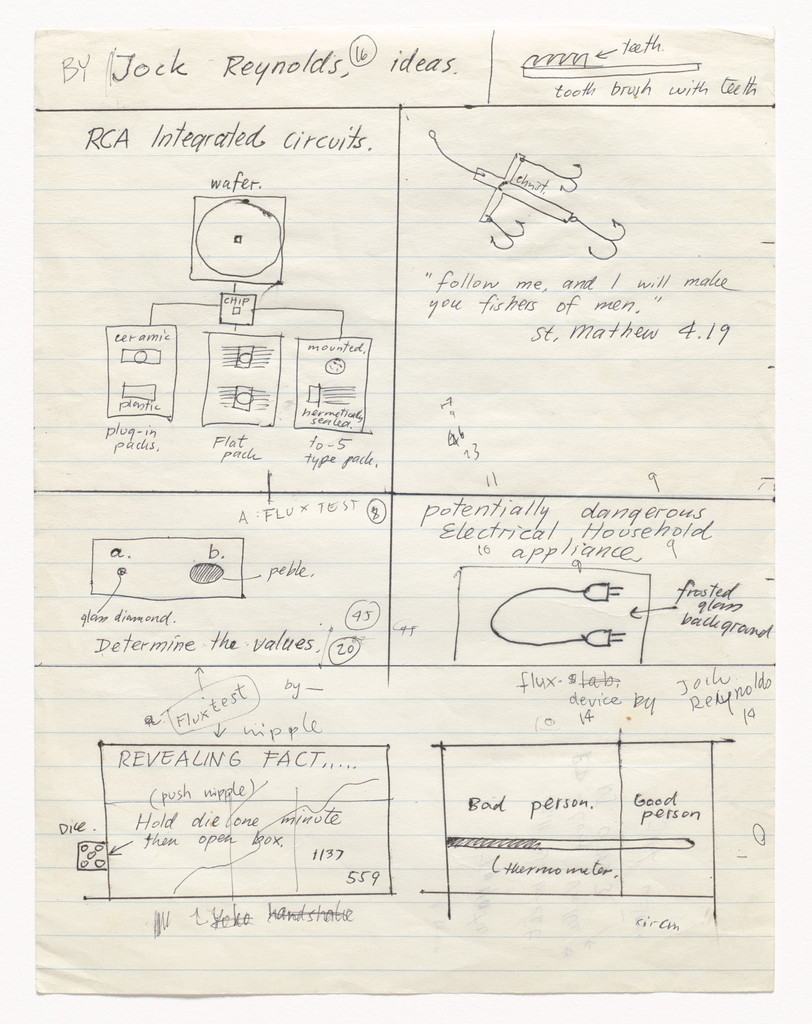 BY Jock Reynolds, 16 ideas.
teeth.
tooth brush with teeth
RCA Integrated circuits.
wafer.
CHIP
ceramic
plastic
plug-in
packs.
Flat
pack
mounted.
hermetically
sealed.
to-5
type pack.
christ.
"follow me, and I will make
you fishers of men."
St, Mathew 4.19
23
11
9
A: FLUX TEST 8
a.
b.
peble.
glass diamond.
45
Determine the values. 20
potentially dangerous
Electrical Household
10 appliance 9
9
frosted
glass
background
45
flux-
device by Jock
Reynolds
14
14
10
by —
Flux test
nipple
REVEALING FACT.....
(push nipple)
Hold die one minute
then open box.
Dice.
1137
559
Yoko handshake
Bad person.
Good
person
thermometer.